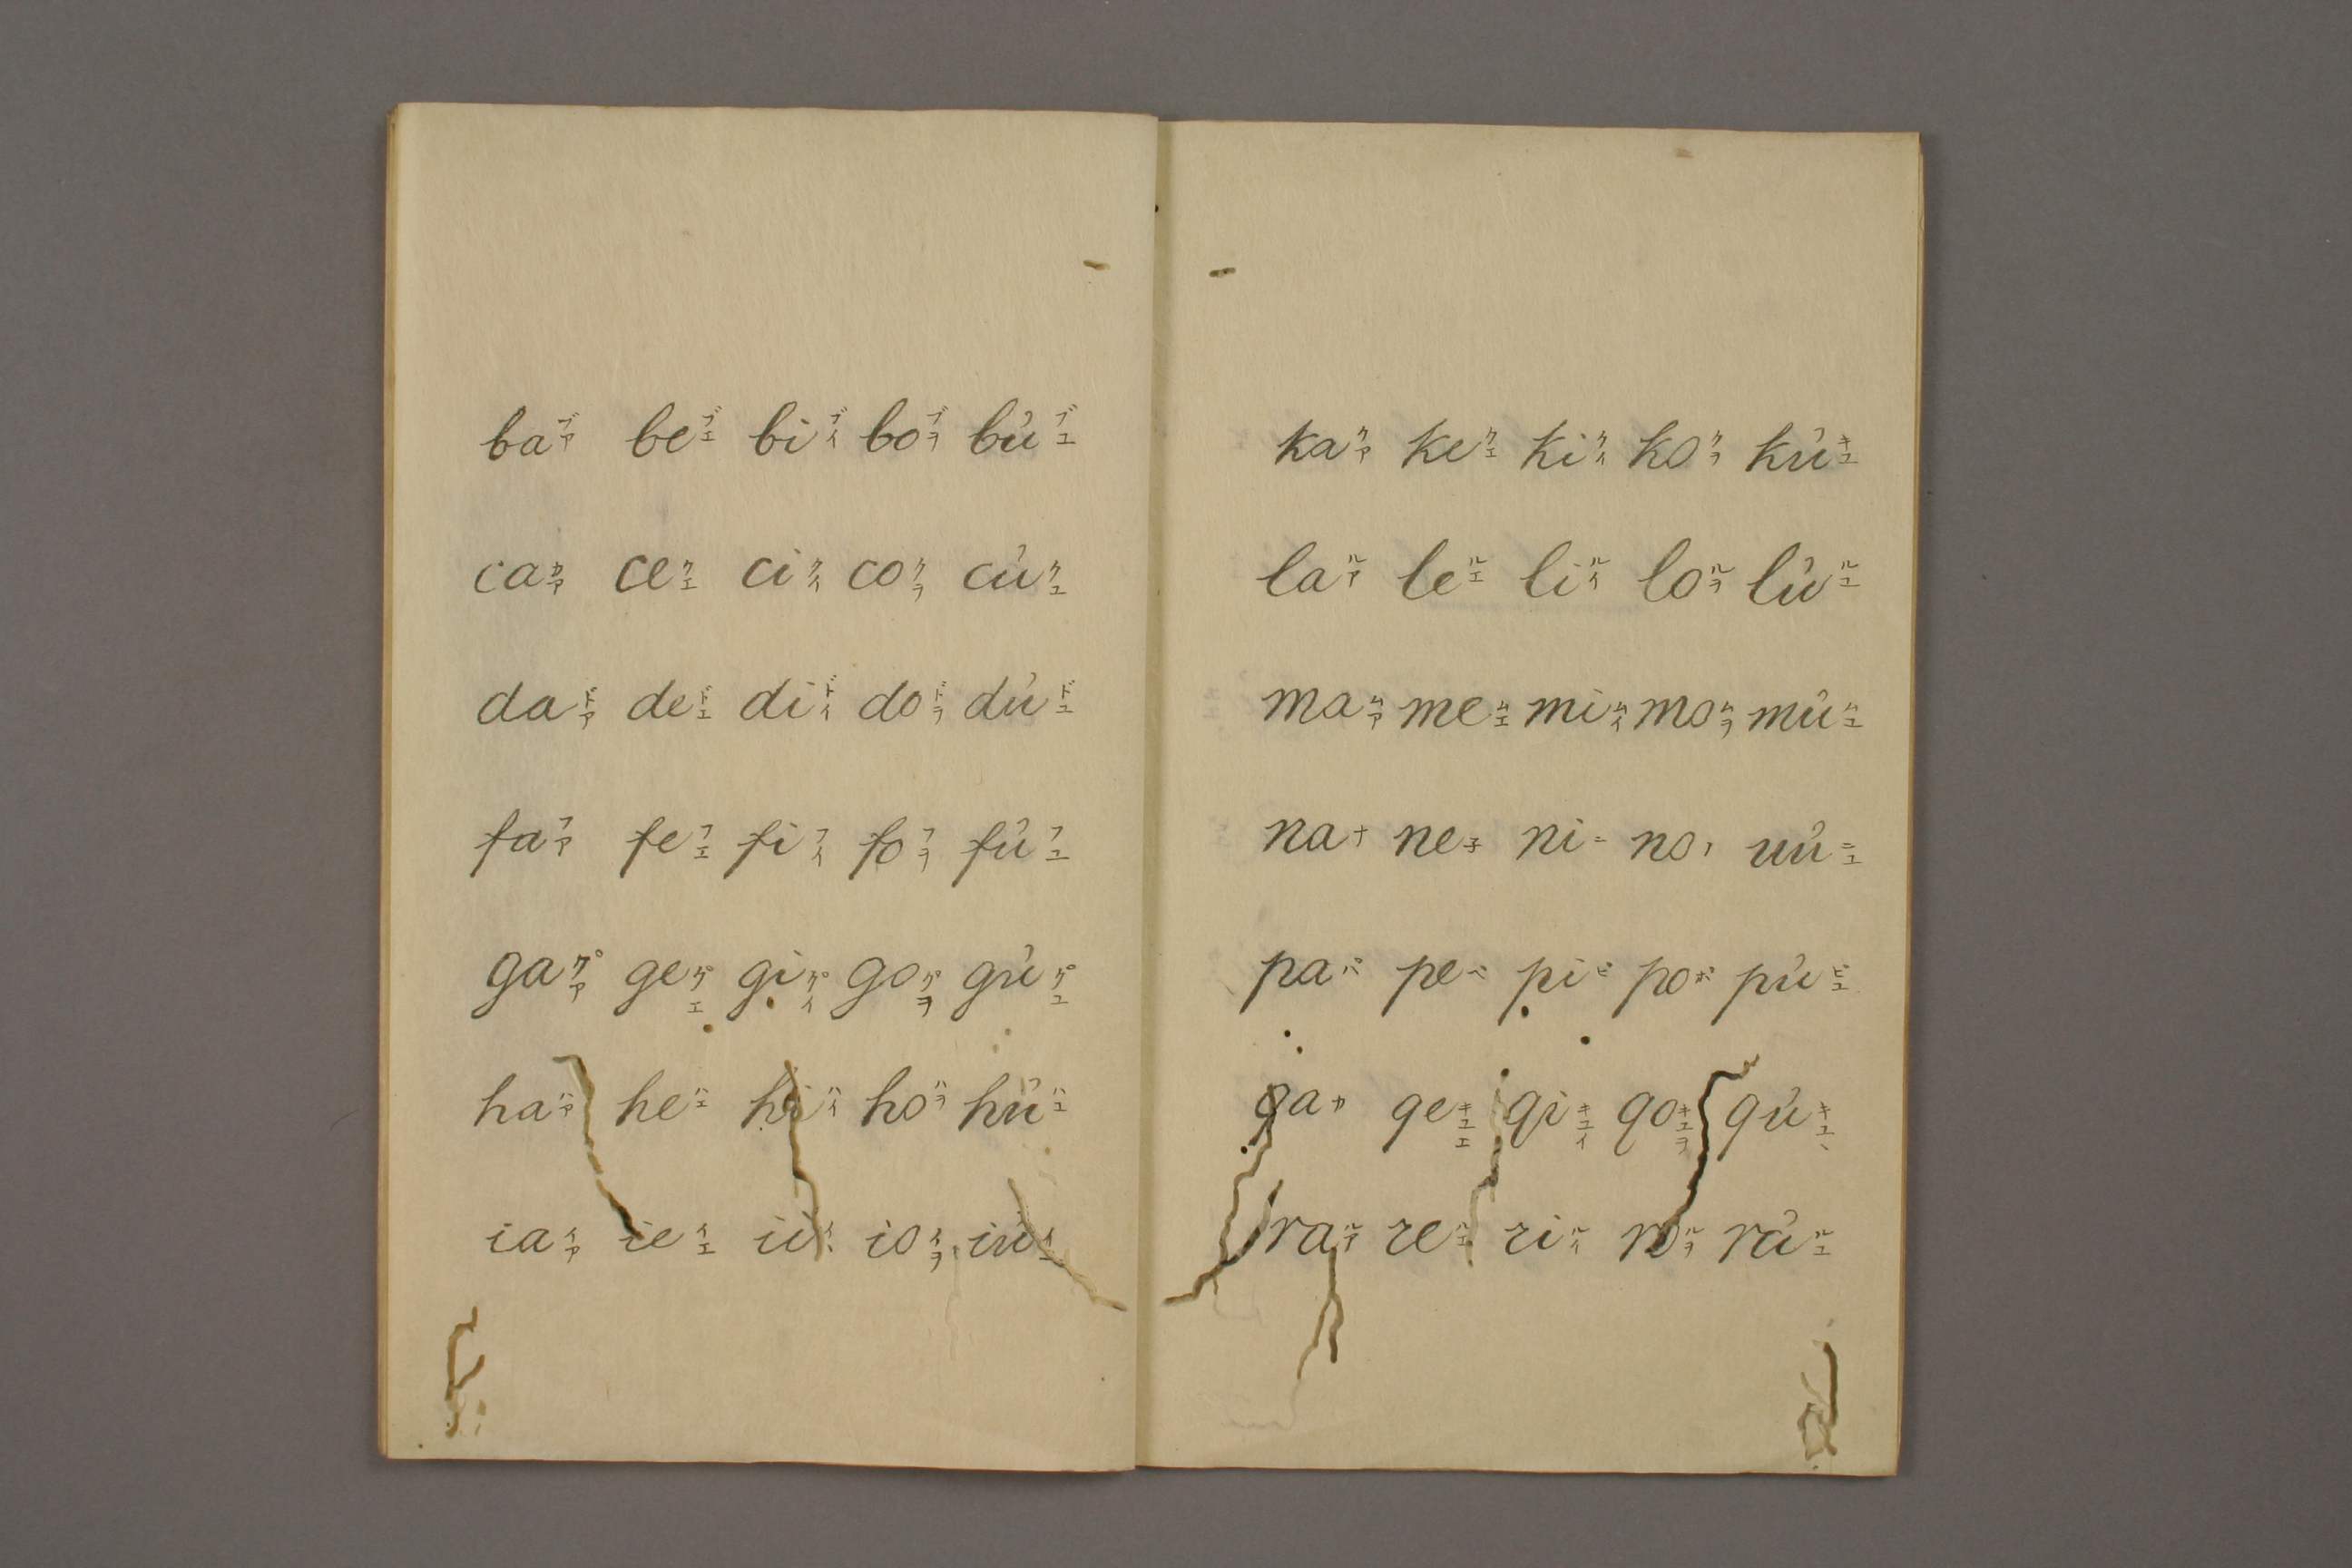 baブア beブエ biブイ boブヲ bu̓ブユ
caカア ceクエ ciクイ coクヲ cu̓クユ
daドア deドエ diドイ doドヲ du̓ドユ
faフア feフエ fiフイ foフヲ fu̓フユ
gaグ゚ア geグ゚エ giグ゚イ goグ゚ヲ gu̓グ゚ユ
haハア heハエ hiハイ hoハヲ hu̓ハユ
iaイア ieイエ iiイ ioイヲ iu̓イユ
kaクア keクエ kiクイ koクヲ ku̓キユ
laルア leルエ liルイ loルヲ lu̓ルユ
maムア meムエ miムイ moムヲ mu̓ムユ
naナ ne子 niニ noノ uu̓ニユ
paパ peペ piピ poポ pu̓ピユ
qaカ qeキユエ qiキユイ qoキユヲ qu̓キユヽ
raルア reルエ riルイ roルヲ ru̓ルユ